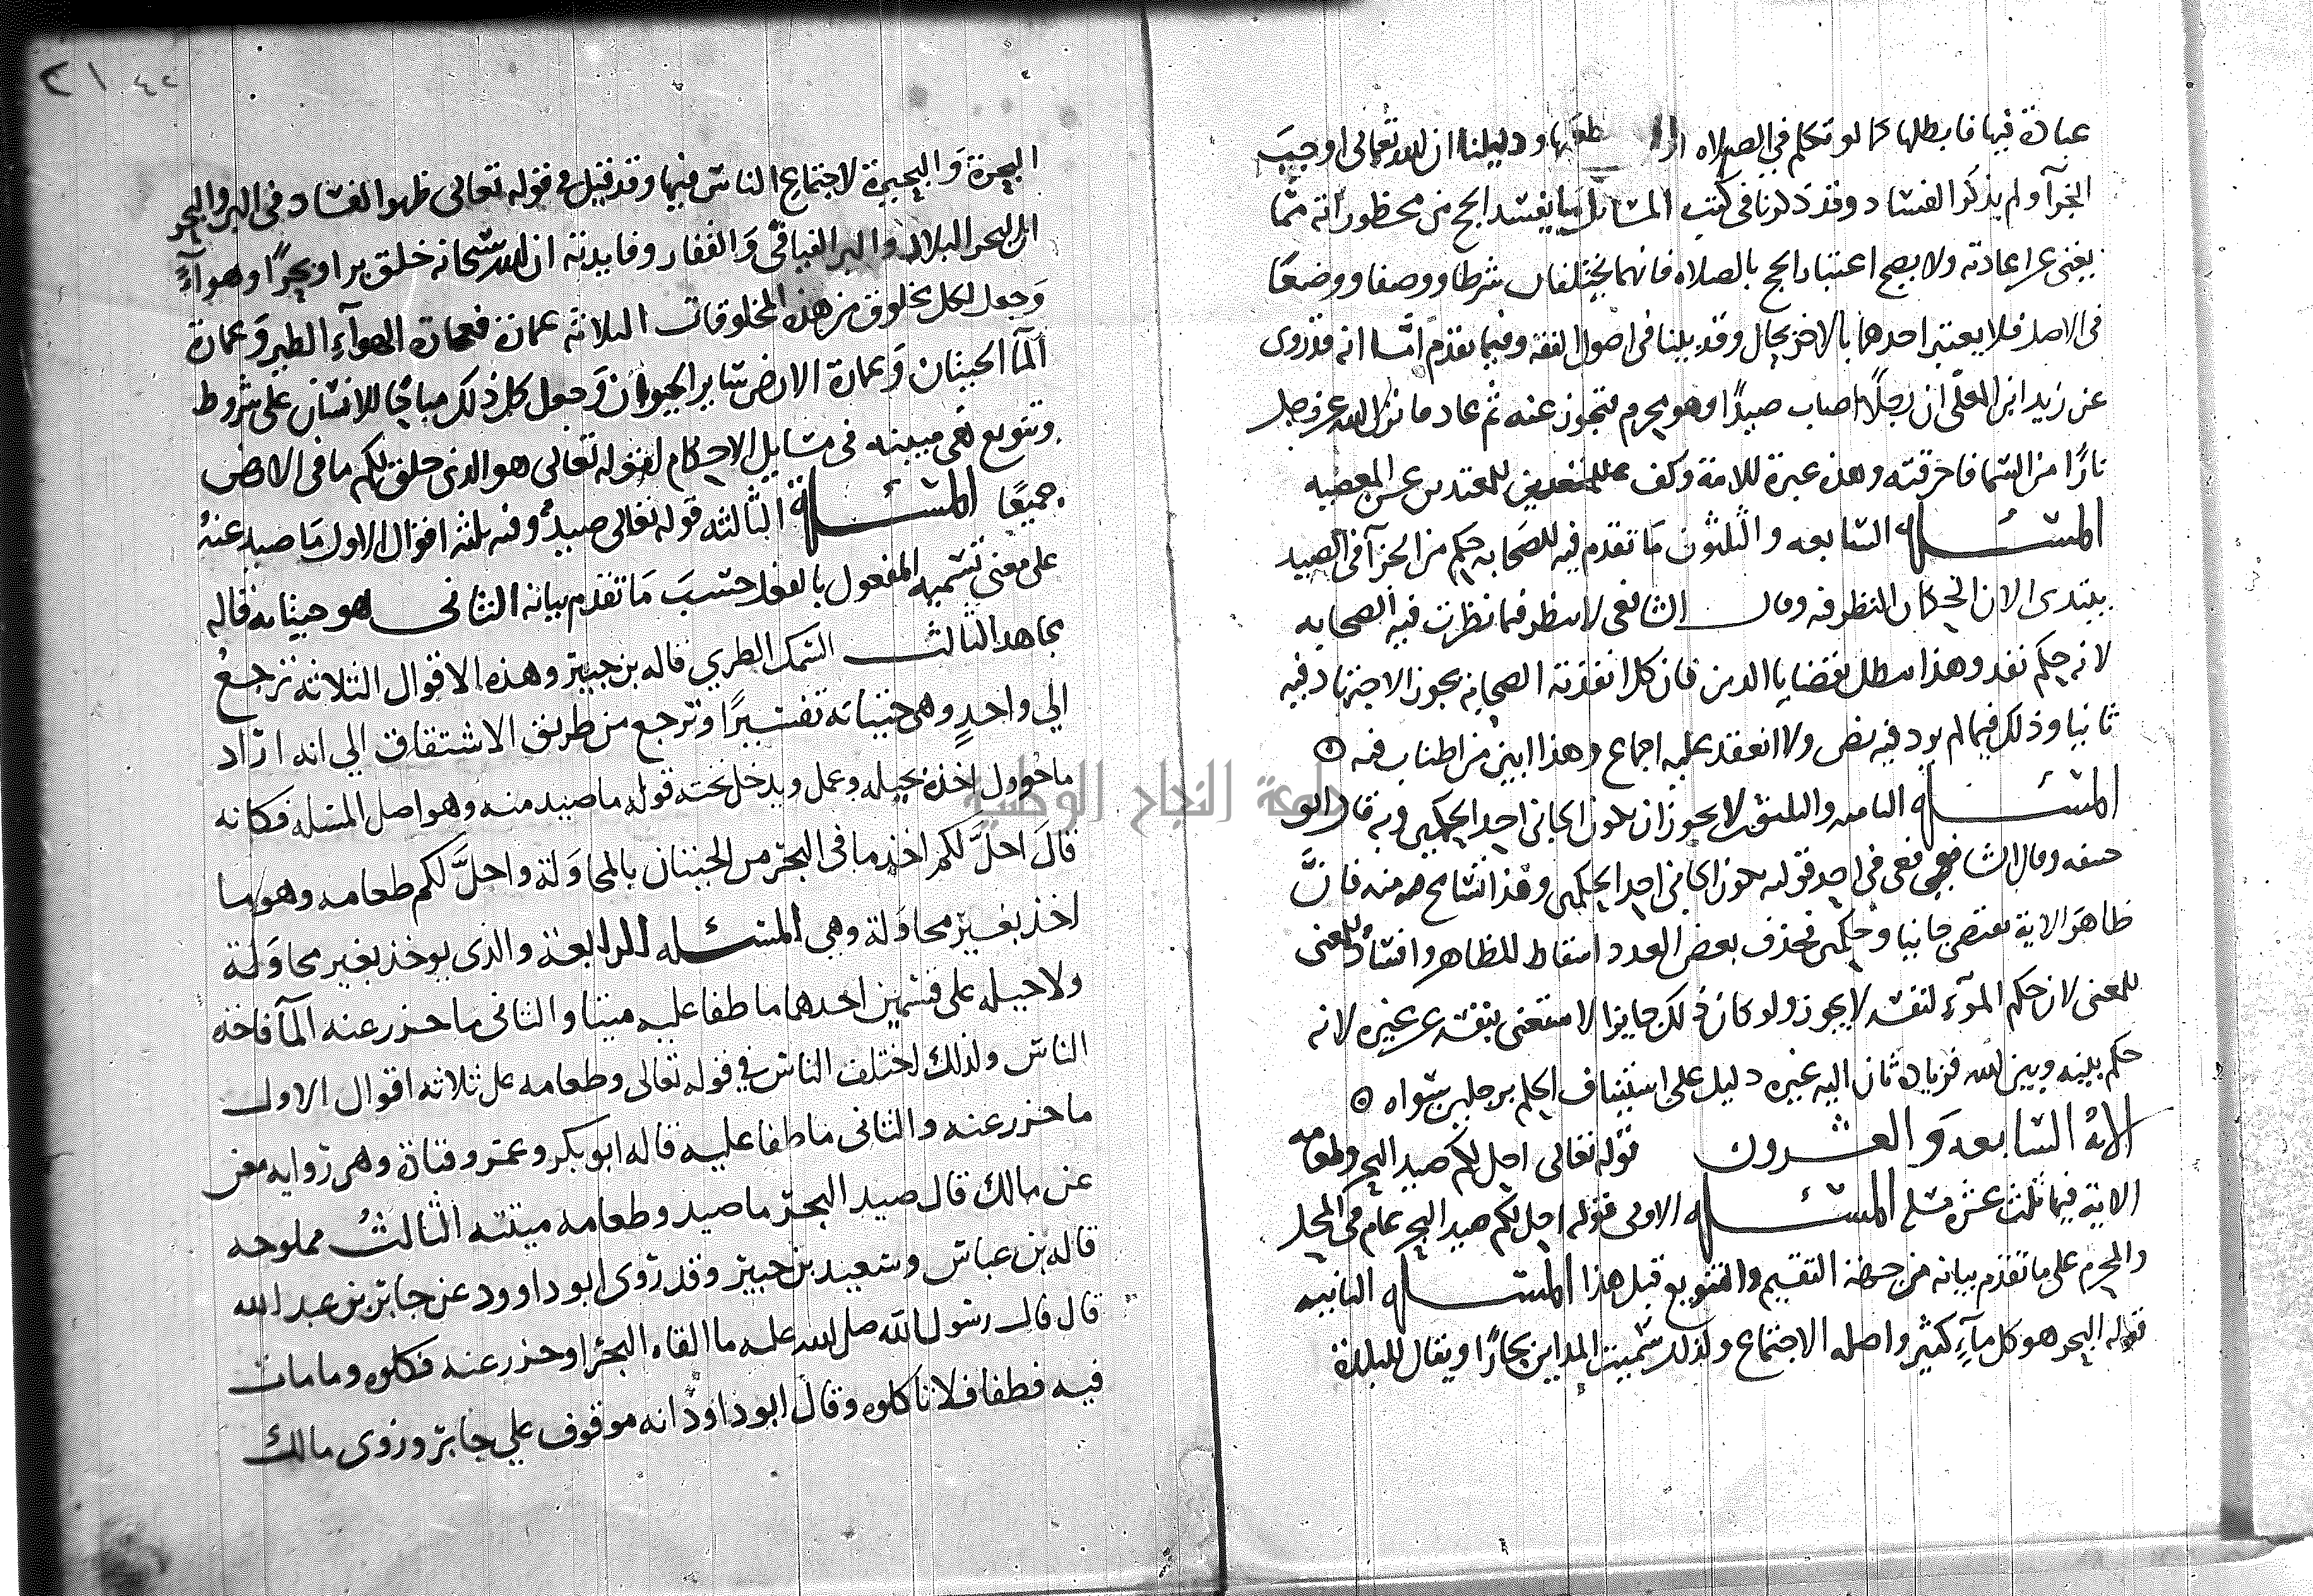 عبادة فيها فابطلها كما لو تكلم في الصلاه او ودليلنا ان الله تعالى اوجب
الجزآ ولم يذكر الفساد وقد ذكرنا في كتب المسايل ما يفسد الحج من محظوراته مما
يغني عن اعادته ولا يصح اعتبار الحج بالصلاه فانهما يختلفان شرطا ووصفا ووضعا
في الاصل فلا يعتبر احدهما بالاخر بحال وقد بينا في اصول الفقه وفيما تقدم اما انه قد روى
عن زيد ابن المعلى ان رجلًا اصاب صيدًا وهو محرم فتجوز عنه ثم عاد فانزل الله عز وجل
نارًا من السما فاحرقته وهذه عبرة للامة وكف للمعتدين عن المعصيه
المسئـله السابعه والثلثون ما تقدم فيه للصحابه حكم من الجزآ في الصيد
يبتدى الان الحكمان النظر فيه وقال الشافعي لا ينظر فيما نظرت فيه الصحابه
لانه حكم نفد وهذا يبطل بقضايا الدين فان كلما انفذته الصحابه يجوز الاجتهاد فيه
ثانيا وذلك فيما لم يرد فيه نص ولا انعقد عليه اجماع وهذا ابين من اطناب فيه
المسئـله الثامنه والثلثون لا يجوز ان يكون الجاني احد الحكمين وبه قال ابو
حنيفه وقال الشافعي في احد قوليه يكون الجاني احد الحكمين وهذا تسامح منه فان
ظاهر الاية يقتضي جانيا وحكمين فحذف بعض العدد اسقاط للظاهر وافساد للمعنى
للمعنى لان حكم المرء لنفسه لا يجوز ولو كان ذلك جايزا لاستغنى بنفسه عن غيره لانه
حكم بينه وبين الله فزيادة ثان اليه غيره دليل على استيناف الحكم برجلين سواه
الايه السابعه والعشرون قوله تعالى احل لكم صيد البحر وطعامه
الاية فيها ثلث عشره مسلة المسئـله الاولى قوله احل لكم صيد البحر عام في المحل
والمحرم على ما تقدم بيانه من جهة التقسيم والتنويع قبل هذا المسئـله الثانيه
قوله البحر هو كل مآءٍ كثير واصله الاجتماع ولذلك سميت المداين بحارًا ويقال للبلدة
البحرة والبحيرة لاجتماع الناس فيها وقد قيل في قوله تعالى ظهر الفساد في البر والبحر
ان البحر البلاد والبر الفيافي والقفار وفايدته ان الله سبحانه خلق برا وبحرًا وهوآءً
وجعل لكل مخلوق من هذه المخلوقات الثلاثه عمارة فعمارة الهوآءِ الطير وعمارة
المآ الحيتان وعمارة الارض ساير الحيوان وجعل كل ذلك مباحًا للانسان على شروط
وتنويع هي مبينه في مسايل الاحكام لقوله تعالى هو الذى خلق لكم ما في الارض
جميعًا المسئـله الثالثه قوله تعالى صيدُ وفيه ثلثه اقوال الاول ما صيد عنه
على معنى تسميه المفعول بالفعل حسب ما تقدم بيانه الثاني هو حيتانه قاله
مجاهد الثالث السمك الطري قاله بن جبير وهذه الاقوال الثلاثه ترجع
الي واحدٍ وهي حيتانه تفسيرًا وترجع من طريق الاشتقاق الي انه اراد
ما حوول اخذه بحيله وعمل ويدخل تحته قوله ما صيد منه وهو اصل المسله فكانه
قال احل لكم اخذ ما في البحر من الحيتان بالمحاولة واحل لكم طعامه وهو ما
اخذ بغير محاولة وهي المسئله الرابعة والذى يوخذ بغير محاولة
ولا حيله على قسمين احدهما ما طفا عليه ميتا والثانى ما حزر عنه المآ فاخذه
الناس ولذلك اختلف الناس في قوله تعالى وطعامه على ثلاثه اقوال الاول
ما حزر عنه والثانى ما طفا عليه قاله ابو بكر وعمر وقتادة وهي روايه معن
عن مالك قال صيد البحر ما صيد وطعامه ميتته الثالث مملوحه
قاله بن عباس وسعيد بن جبير وقد روى ابو داوود عن جابر بن عبد الله
قال قال رسول الله صلى الله عليه ما القاه البحر او حزر عنه فكلوه وما مات
فيه فطفا فلا تاكلوه وقال ابو داود انه موقوف علي جابر وروى مالك
جامعة النجاح الوطنية